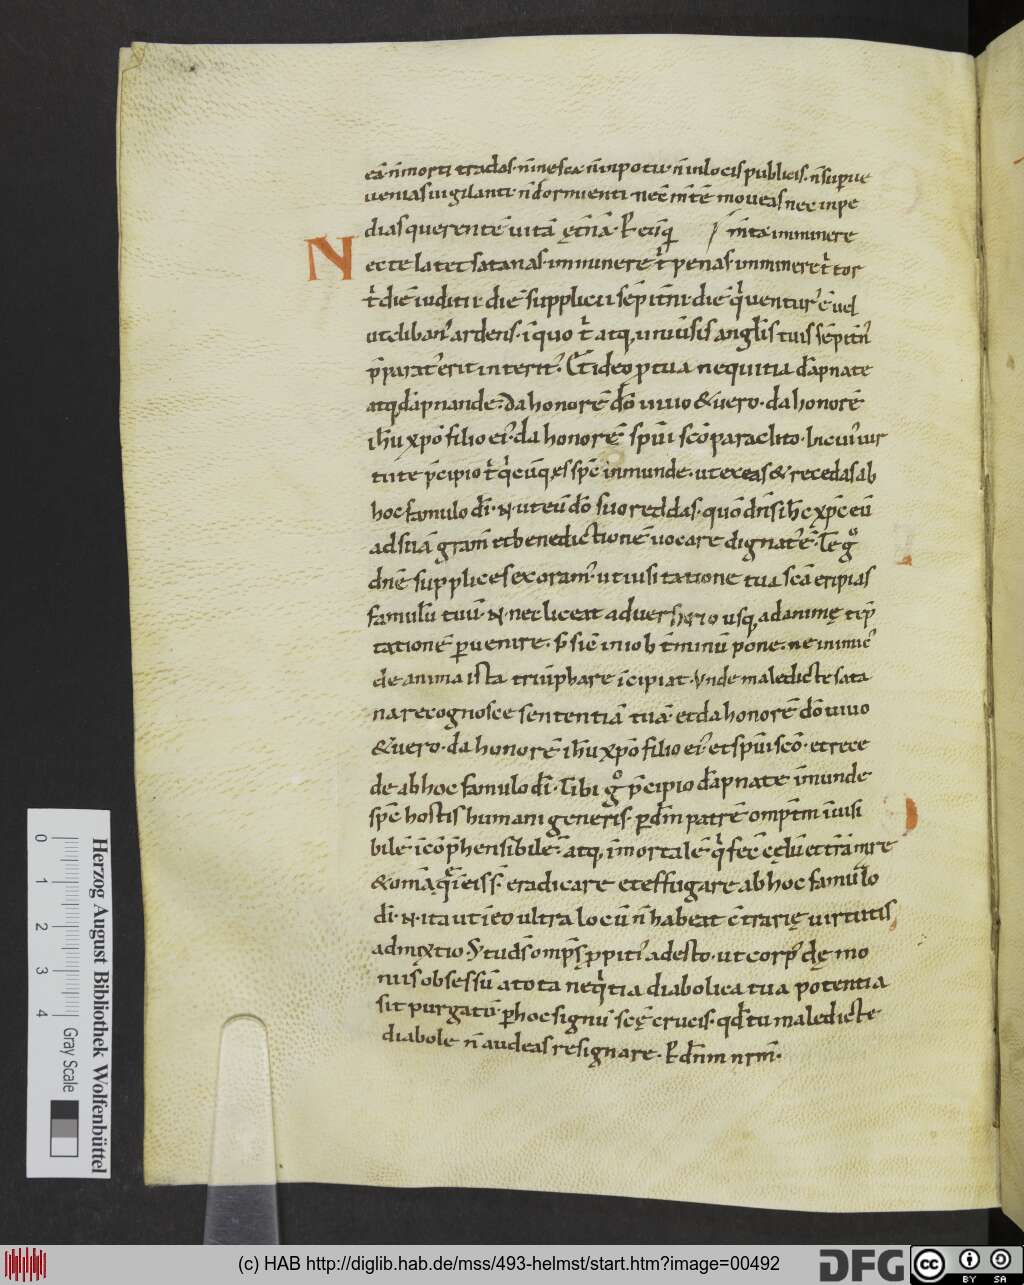 eā · n̄ morti tradas · n̄ in esca n̄ in potu · n̄ in locis publicis · n̄ sup̄ue
uenias uigilanti · n̄ dormienti nec̄ m̄tē moueas nec inpe
dias querentē uitā ęt̄nā · P et̄i q̄ m̄ta imminere
Nec te latet satanas · imminere t̄ penas · imminere t̄ tor
t̄ diē iuditii · diē supplicii sēp it̄ni · diē q̄ uentur' ē uel
ut cliban' ardens · in quo t̄ atq, uniūsis angl̄is tuis sēpit̄n'
p̄parat' erit interit' · Et ideo p tua nequitia dāpnate
atq, dāpnande · da honorē dō uiuo & uero · da honorē
ih̄u xp̄o filio ei' · da honorē sp̄ui sc̄o paraclito · In cui' uir
tute p̄cipio t̄ q̄cūq, es sp̄c inmunde · ut exeas & recedas ab
hoc famulo dī · N · ut eū dō suo reddas · quō dn̄s ih̄c xp̄c eū
ad suā gram̄ et benedictionē uocare dignat' ē · Te g°
dn̄e supplices exoram' · ut uisitatione tua sc̄a eripias
famulū tuū · N · nec liceat aduersario usq, ad animę tēp
tationē p̄uenire · S; sic̄ in iob t̄minū pone · ne inimic'
de anima ista triūphare īcipiat · Unde maledicte sata
na recognosce sententiā tuā · et da honorē dō uiuo
& uero · da honorē ih̄u xp̄o filio ei' · et sp̄ui sc̄o · et rece
de ab hoc famulo dī · Tibi g° p̄cipio dāpnate īmunde
sp̄c hostis humani generis · p dm̄ patrē omp̄tm īuisi
bilē īcōp̄hensibilē · atq, īmortalē q̄ fec̄ cęlū et trā mre
& omā q̄ ī eis s̄ · eradicare et effugare ab hoc famulo
dī · N · ita ut ī eo ultra locū n̄ habeat c̄trarię uirtutis
admixtio · S; tu ds̄ omp̄s ppiti' adesto · ut corp' dę mo
niis obsessū a tota neq̄tia diabolica tua potentia
sit purgatū p hoc signū scę̄ crucis · qd̄ tu maledicte
diabole n̄ audeas resignare · P dn̄m nrm̄ ·
0 1 2 3 4
Herzog August Bibliothek Wolfenbüttel
Gray Scale
(c) HAB http://diglib.hab.de/mss/493-helmst/start.htm?image=00492
DFG
cc
BY SA